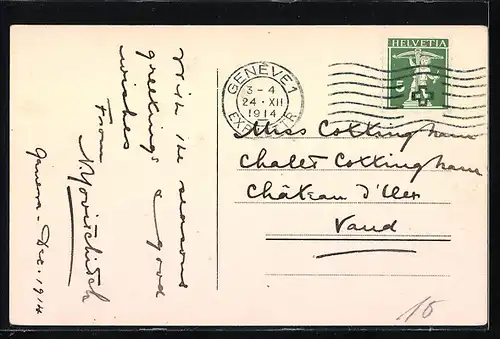 With the seasons
greetings & good
wishes
From
Geneva - Dec. 1914
GENÈVE 1
3-4
24·XII
1914
EXP. LETTR.
HELVETIA
5
Miss Cottingham
Chalet Cottingham
Château d'Oex
Vaud
15